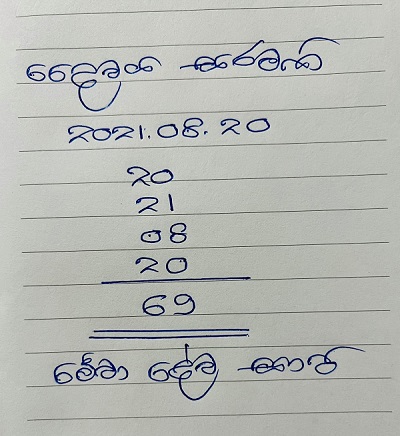 දෛවය
2021.08.20
20
21
08
20
69
මේවා දේව